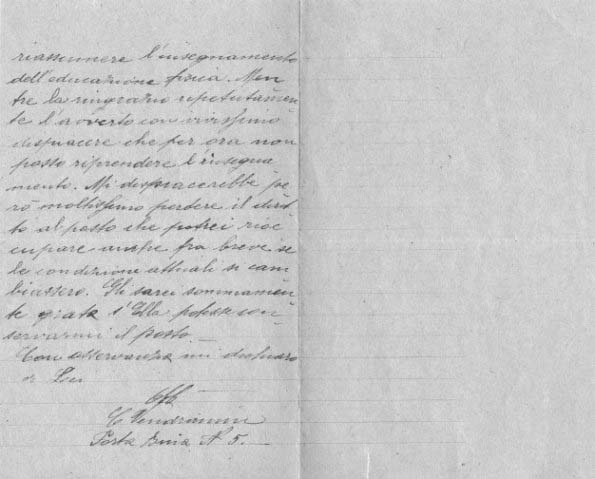 riassumere l'insegnamento
dell'educazione fisica. Men
tre la ringrazio ripetutamen
te l'avverto con vivissimo
dispiacere che per ora non
posso riprendere l'insegna
mento. Mi dispiacerebbe pe
rò moltissimo perdere il dirit
to al posto che potrei rioc
cupare anche fra breve se
le condizioni attuali si cam
biassero. Gli sarei sommamen
te grata s'Ella potesse con
servarmi il posto. —
Con osservanza mi dichiaro
di Lei
C Vendramin
Porta Buia N 5. —